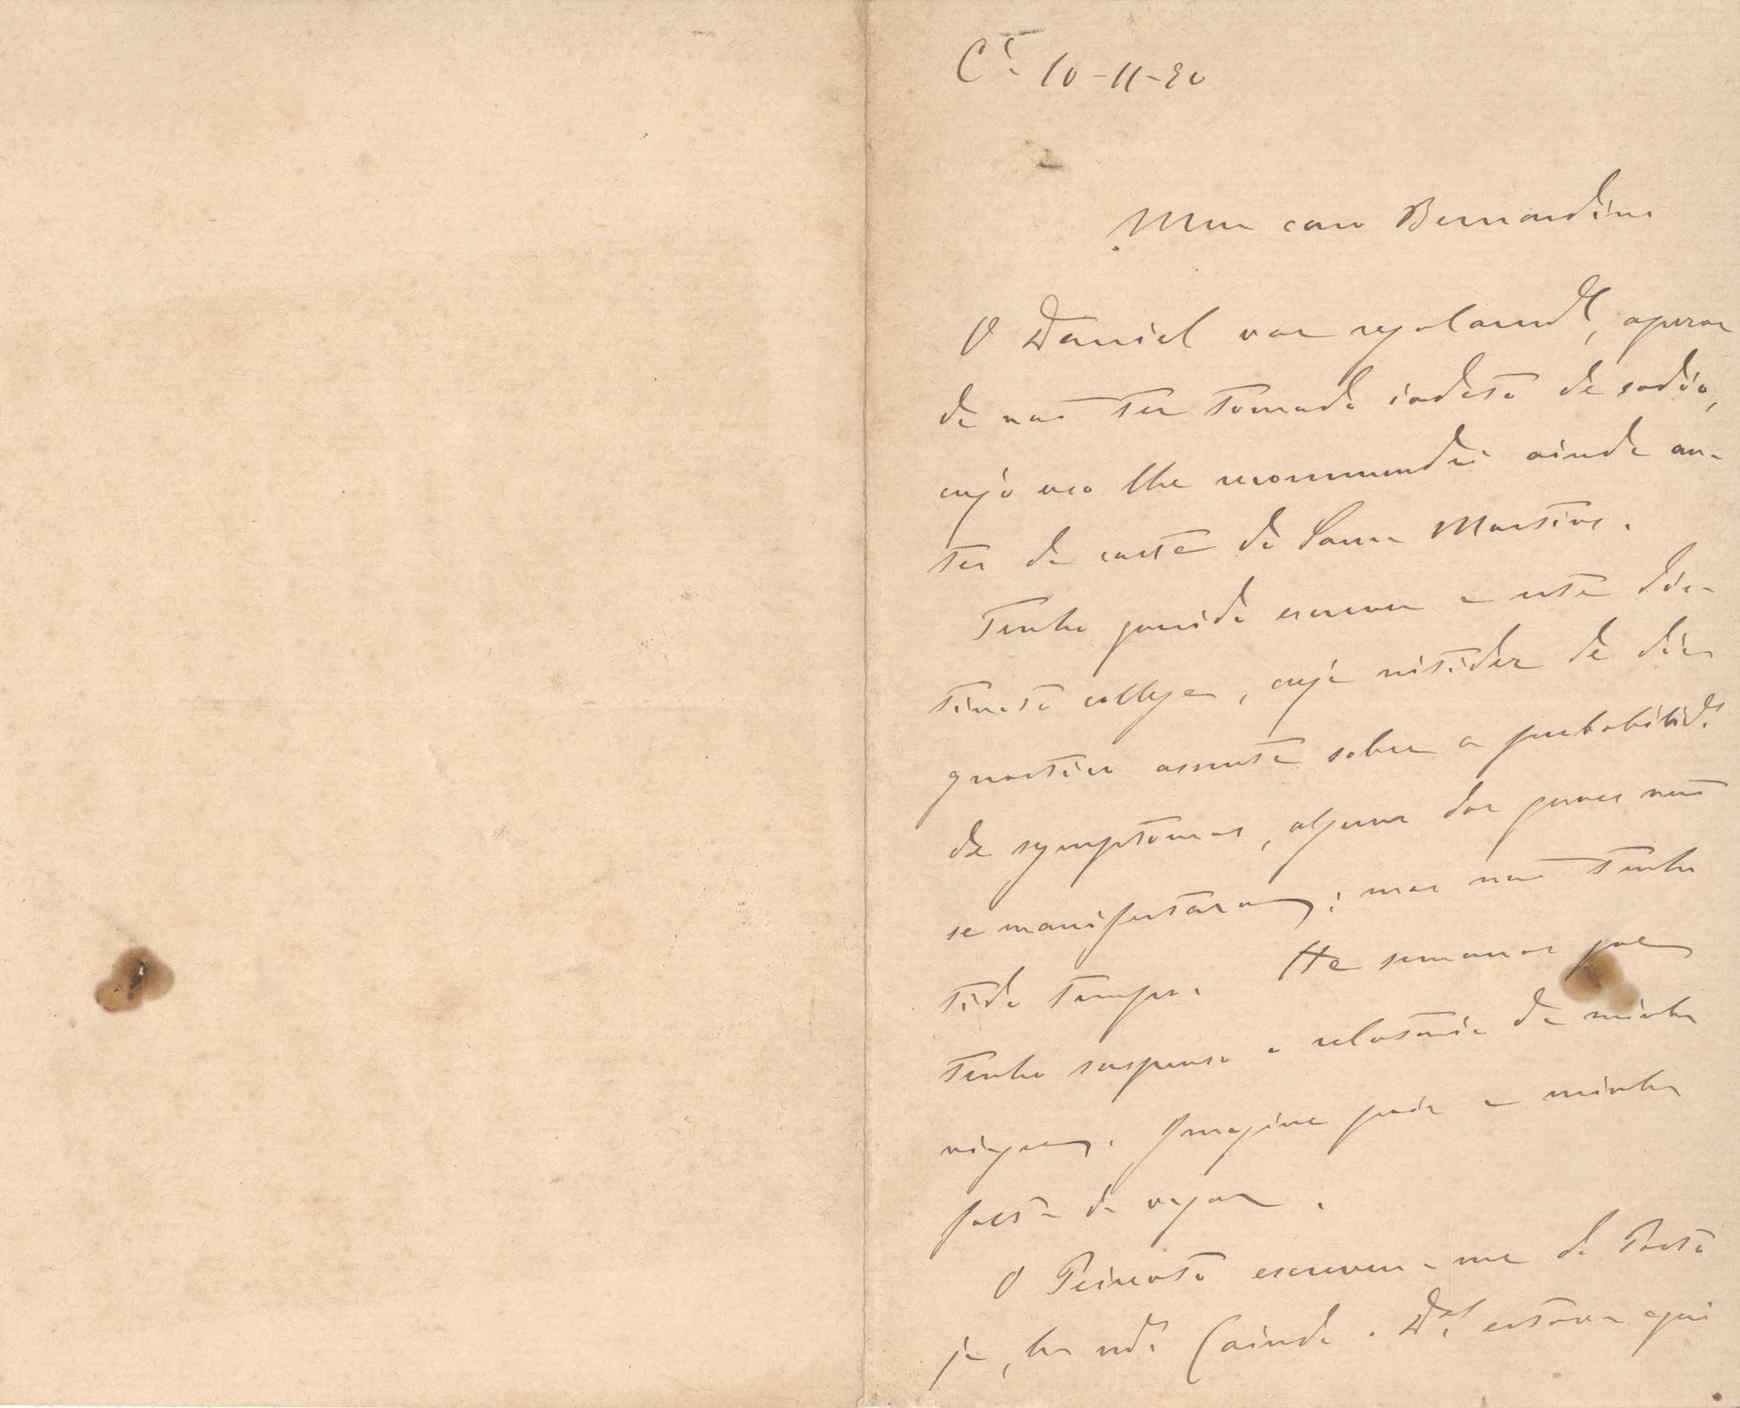 Cª 10-11-90
Meu caro Bernardino
O Daniel vae regularmte, apezar
de não ter tomado iodeto de sodio,
cujo uso lhe recommendei ainda an-
tes da carta do Sousa Martins.
Tenho querido escrever a este dis-
tincto collega, cuja nitidez de dia-
gnostico assenta sobre a probabilide
de symptomas, alguns dos quaes não
se manifestaram; mas não tenho
tido tempo. Ha semanas que
tenho suspenso o relatorio da minha
viagem. Imagine pois a minha
falta de vagar.
O Peixoto escreveu-me do Porto
ja, ha (ainda o Del estava aqui